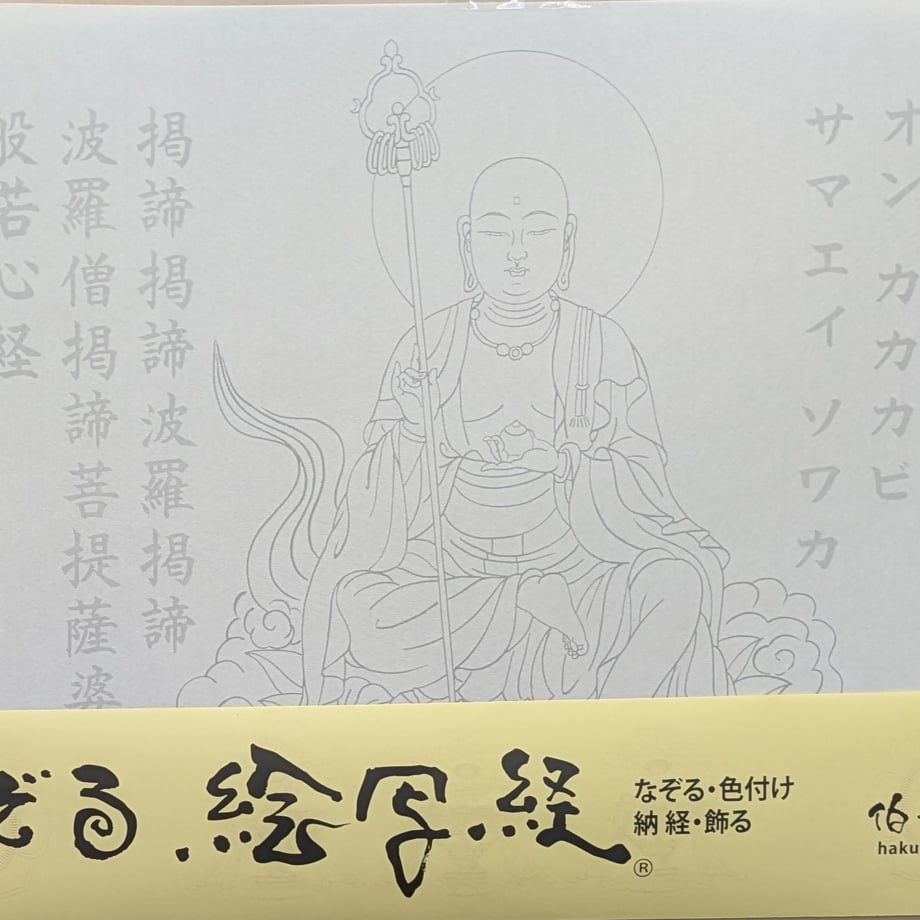 オン カカカビ
サマエイ ソワカ
掲諦掲諦波羅掲諦
波羅僧掲諦菩提薩婆
般若心経
ぞる 絵写経®
なぞる・色付け
納経・飾る
伯
haku